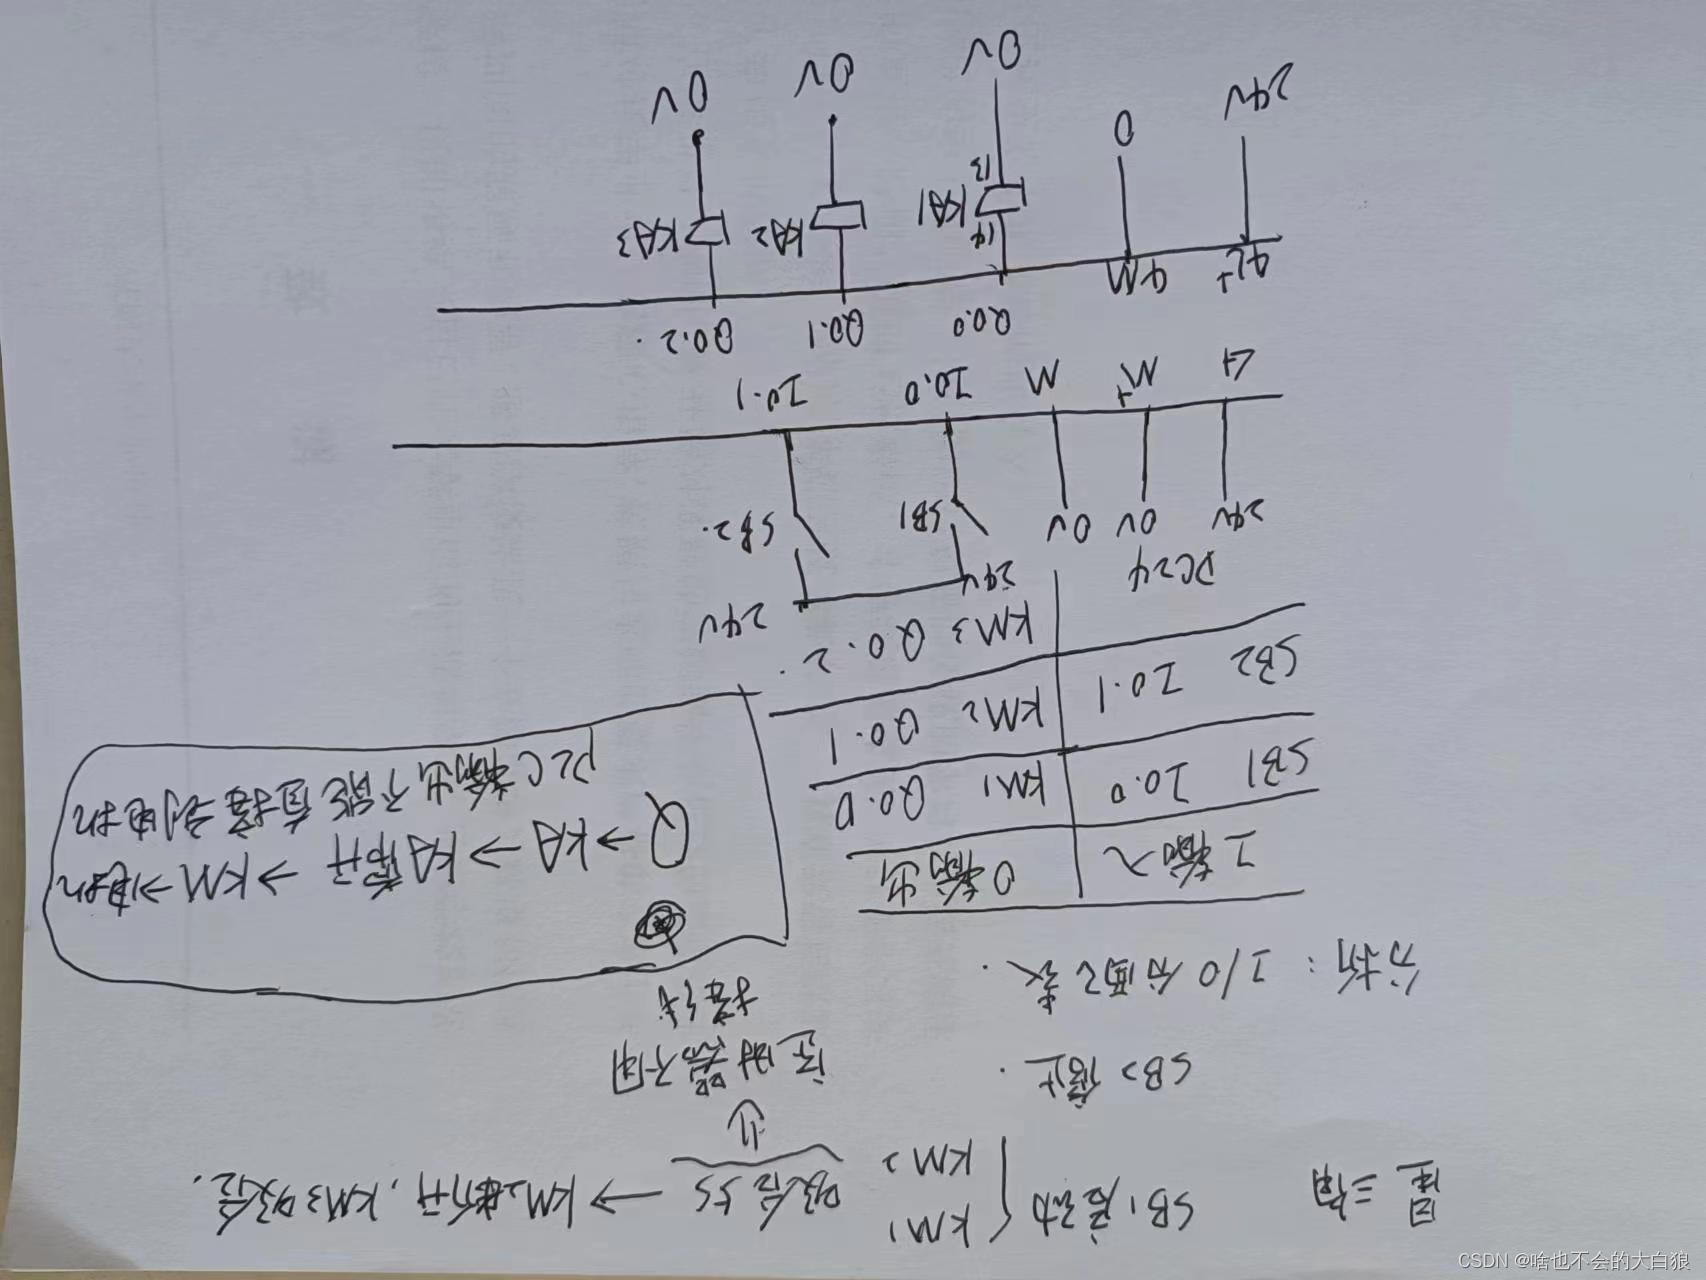 星三角 SB1启动 { KM1
KM2
吸合5S → KM2断开, KM3吸合.
SB2 停止.
定时器不用
接线
分析: I/O分配表.
I输入 O输出
SB1 I0.0 KM1 Q0.0
SB2 I0.1 KM2 Q0.1
KM3 Q0.2.
Q→KA→KA常开→KM→电机
PLC输出不能直接到电机
DC24
24V 0V 0V 24V 24V
SB1 SB2.
L+ M M I0.0 I0.1
Q0.0 Q0.1 Q0.2.
4L+ 4M
14
KA1 KA2 KA3
13
24V 0 0V 0V 0V
CSDN @啥也不会的大白狼